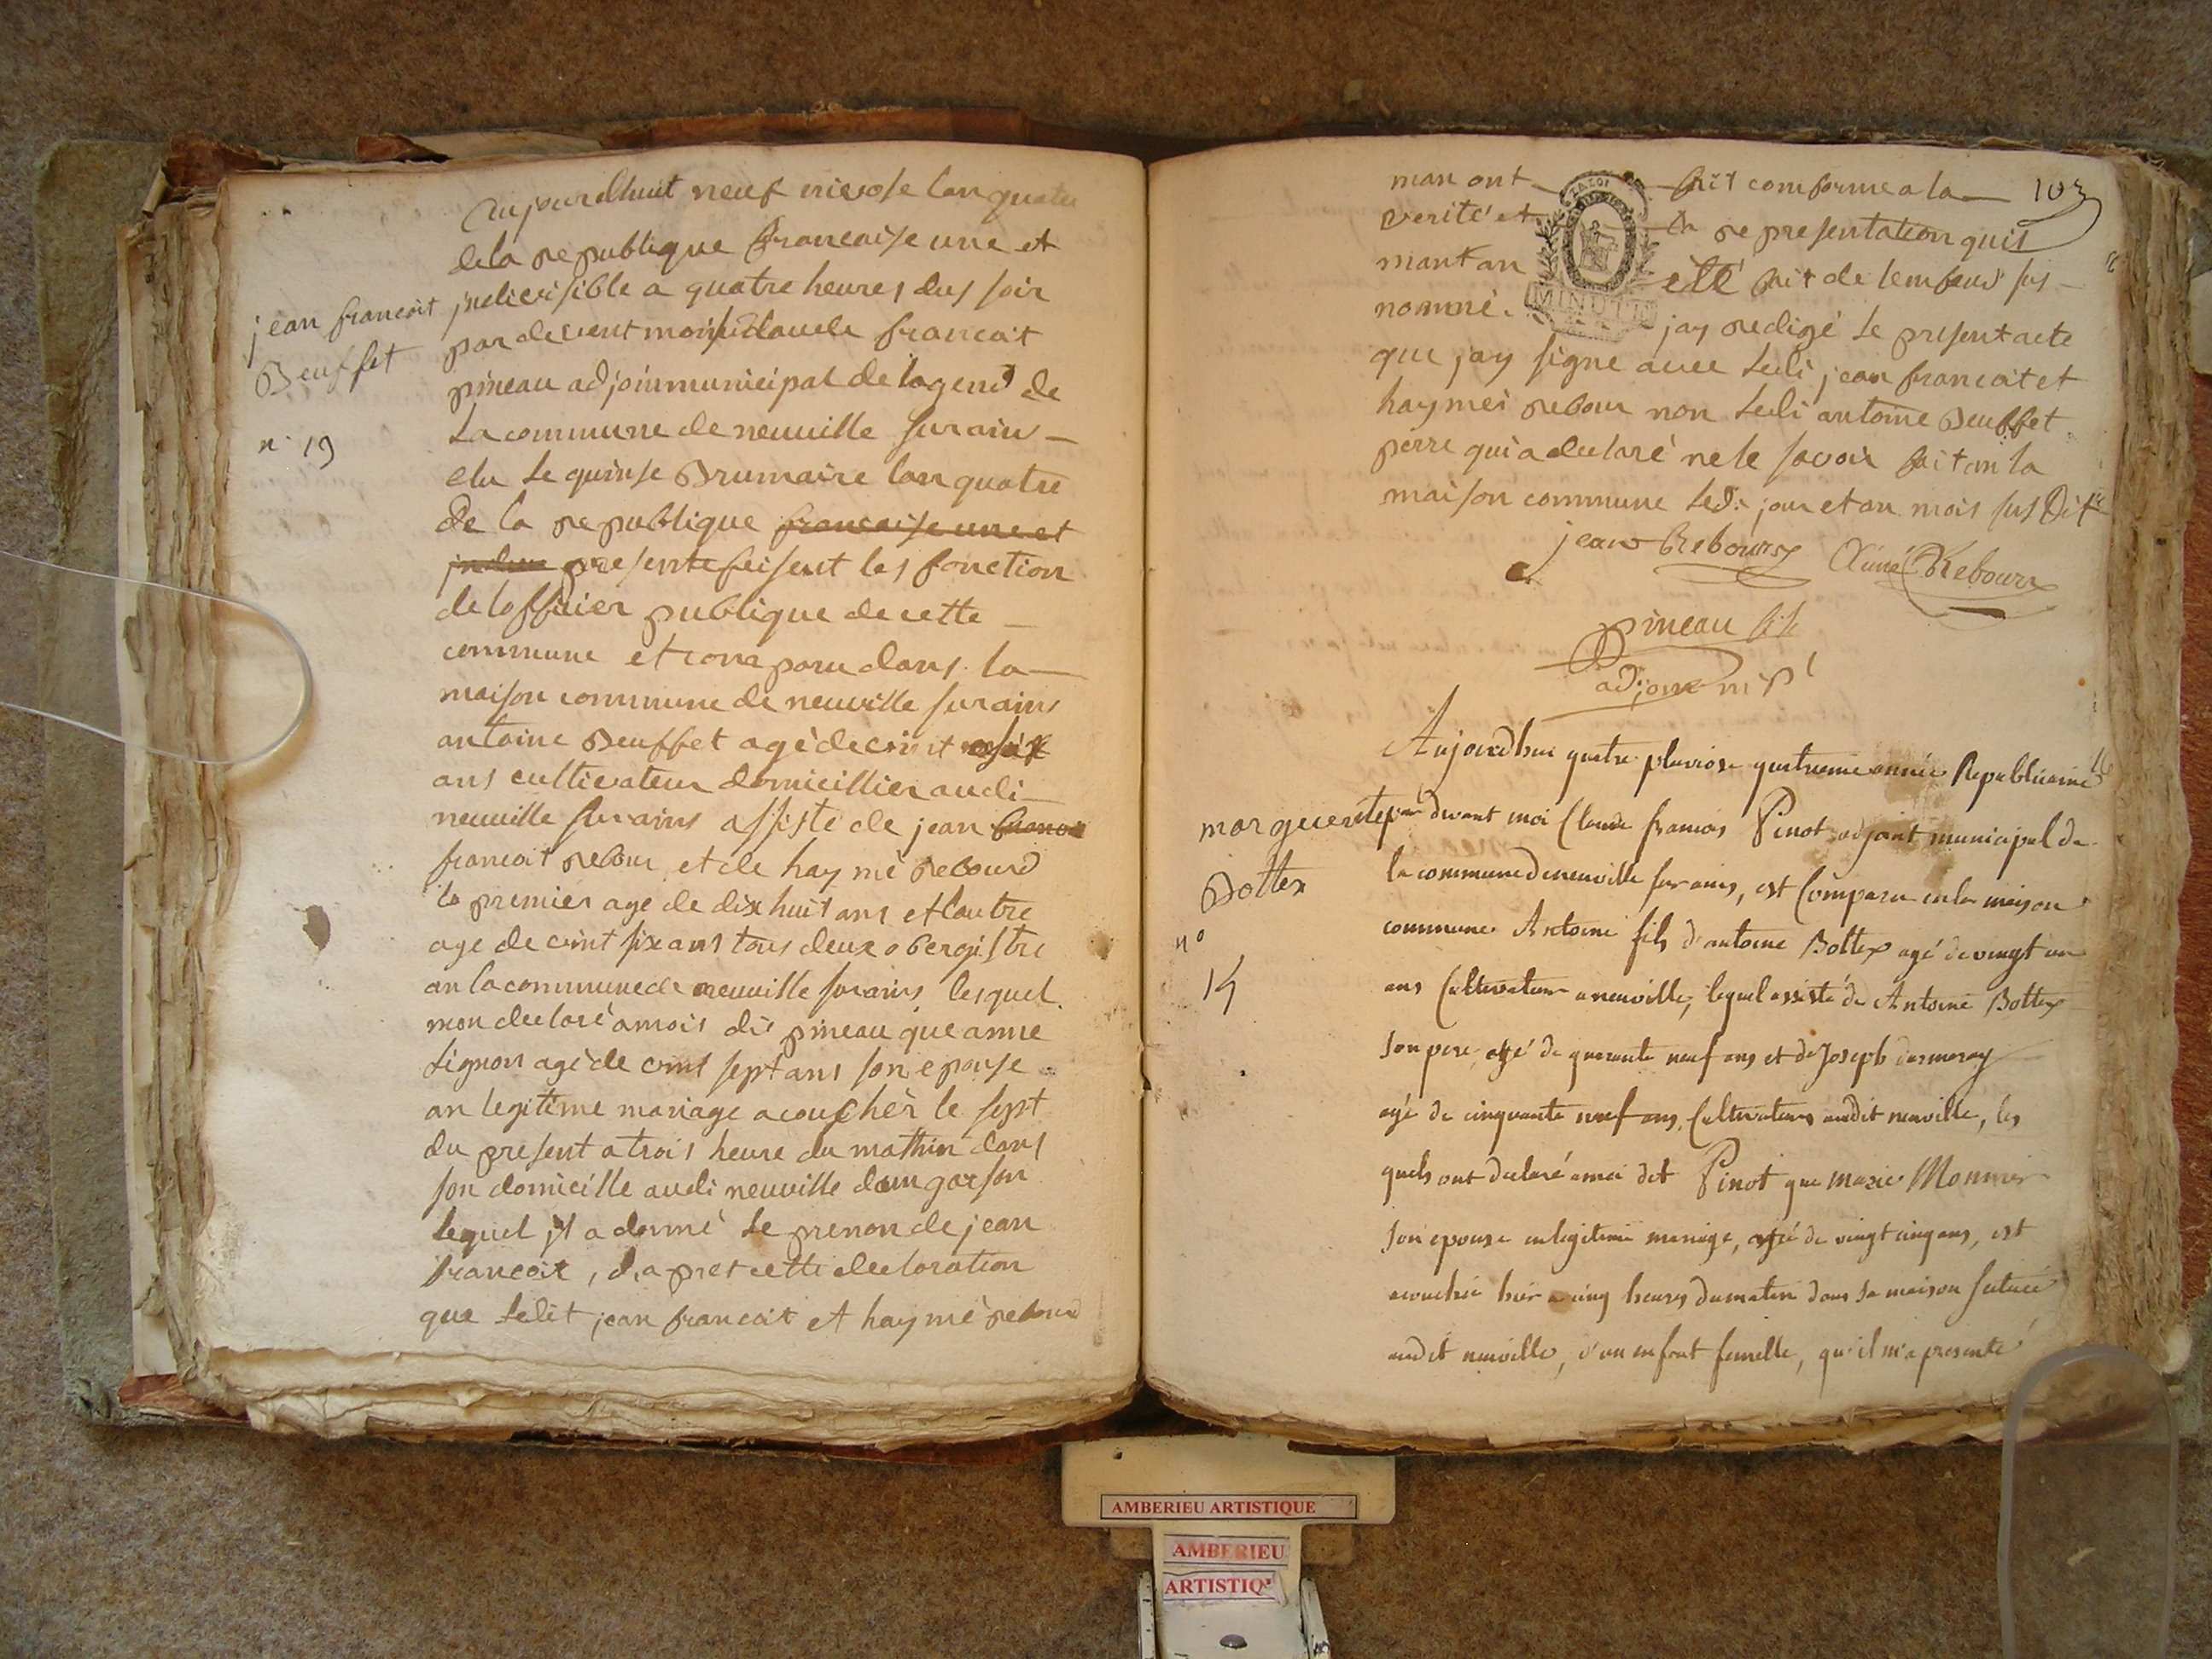 aujourdhuit neuf nivose lan quatre
dela republique francaise une et
jean francoit
Beuffet
n° 19
jndivisible a quatre heures dus soir
par devent moi Claude francoit
pineau adjoin municipal de lagend de
La commune de neuville surain
elu le quinse Brumaire lan quatre
de la republique francaise une et
presente feisent les fonction
de loffisier publique de cette
commune et conz paru dans la
maison commune de neuville surains
antoine Beuffet agé de
ans cultivateur domicillier audi
neuville surains assisté de jean
francoit rebour et de hay mé rebourd
le premier age de dix huit ans et lautre
age de ceint six ans tous deux obergistre
an la commune de neuville surains lesquel
mon declaré a mois dis pineau que anne
Lignon agé de ceint sept ans son epouse
an legitime mariage acouchér le sept
du present a trois heure du mathin dans
son domicille audi neuville daun garson
lequel jl a donné le prenon de jean
francoit, d, a pret cette decloration
que ledit jean francoit et hay mé rebourd
man ont fait comforme a la 103
verité et la representation quil
mant an été fait de lenfend sus
nommé. jay redigé le present acte
MINUTTE
que jay signe avec ledi jean francoit et
haymei rebour non ledi antoine Beuffet
perre qui a declaré ne le savoir fait an la
maison commune led. jour et an mois sus Dit
jean Rebours Aimé Rebour
pineau fils
adjoint mpl
Aujourdhui quatre pluviose quatrieme année Republicaine
marguerite
Bottex
n°
14
par devant moi Claude francois Pinot adjoint municipal de
la commune de neuville sur ains, est Comparu en la maison
commune Antoine fils d'antoine Bottex agé de vingt un
ans Cultivateur a neuville, lequel assisté de Antoine Bottex
son pere, agé de quarante neuf ans et de Joseph darmeray
agé de cinquante neuf ans, Cultivateurs audit neuville, les
quels ont declaré a moi dit Pinot que marie Monnier
son epouse en legitime mariage, agée de vingt cinq ans, est
acouchée hier a cinq heures du matin dans sa maison scituée
audit neuville, d'un enfant femelle, qu'il m'a presenté
AMBERIEU ARTISTIQUE
AMBERIEU
ARTISTIQ